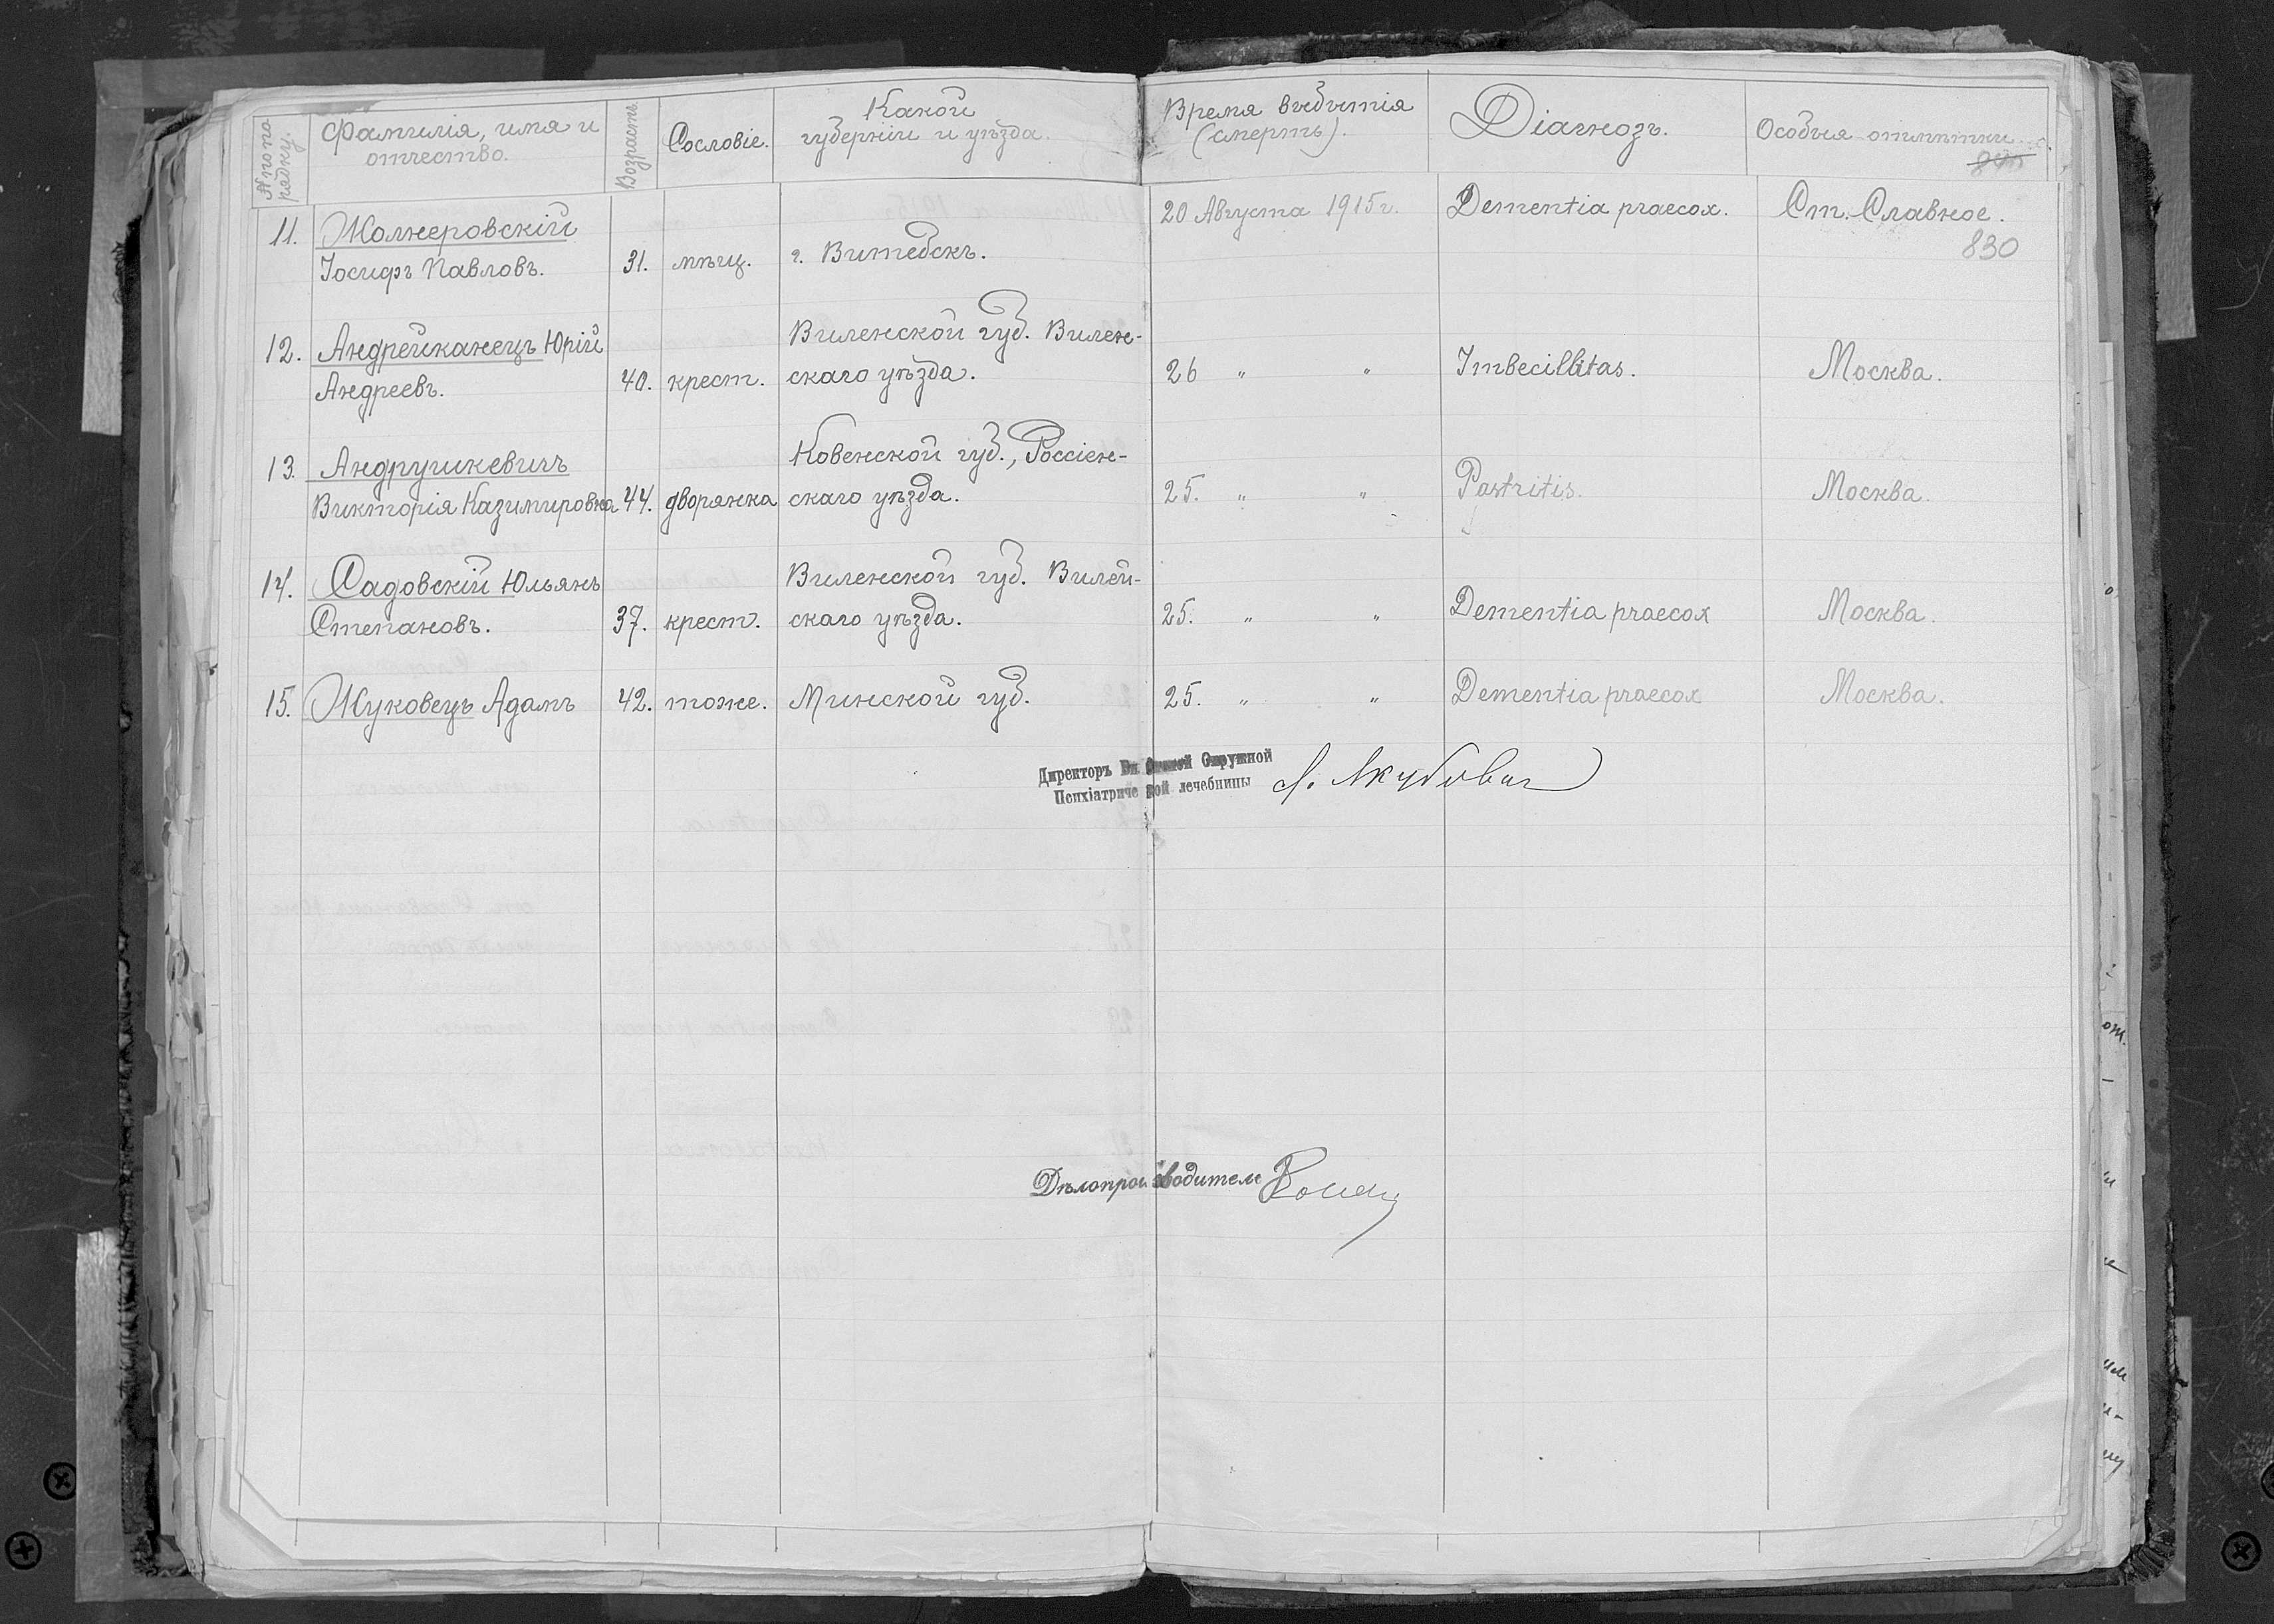 № по по
рядку.
Фамилія, имя и
отчество.
Возрастъ
Сословіе.
Какой
губерніи и уѣзда.
Время выбытія
(смерть).
Діагнозъ.
Особыя отмѣтки.
11. Жолнеровскій
Іосифъ Павловъ. 31. мѣщ. г. Витебскъ. 20 Августа 1915 г. Dementia praecox. Ст. Славное.
830
12. Андрейканецъ Юрій Виленской губ. Вилен-
Андреевъ. 40. крест. скаго уѣзда. 26 " " Imbecillitas. Москва.
13. Андрушкевичъ Ковенской губ., Россіен-
Викторія Казимировна 44. дворянка скаго уѣзда. 25. " " Москва.
14. Садовскій Юльянъ Виленской губ. Вилей-
Степановъ. 37. крест. скаго уѣзда. 25. " " Dementia praecox Москва.
15. Жуковецъ Адамъ 42. тоже. Минской губ. 25. " " Dementia praecox Москва.
Директоръ Окружной
Психіатриче кой лечебницы Якубович
Дѣлопроизводитель